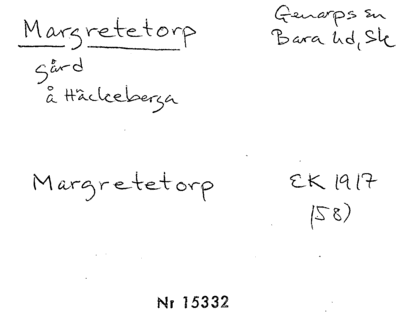 Margretetorp
Genarps sn
Bara hd, Sk
gård
å Häckeberga
Margretetorp
EK 1917
(58)
Nr 15332